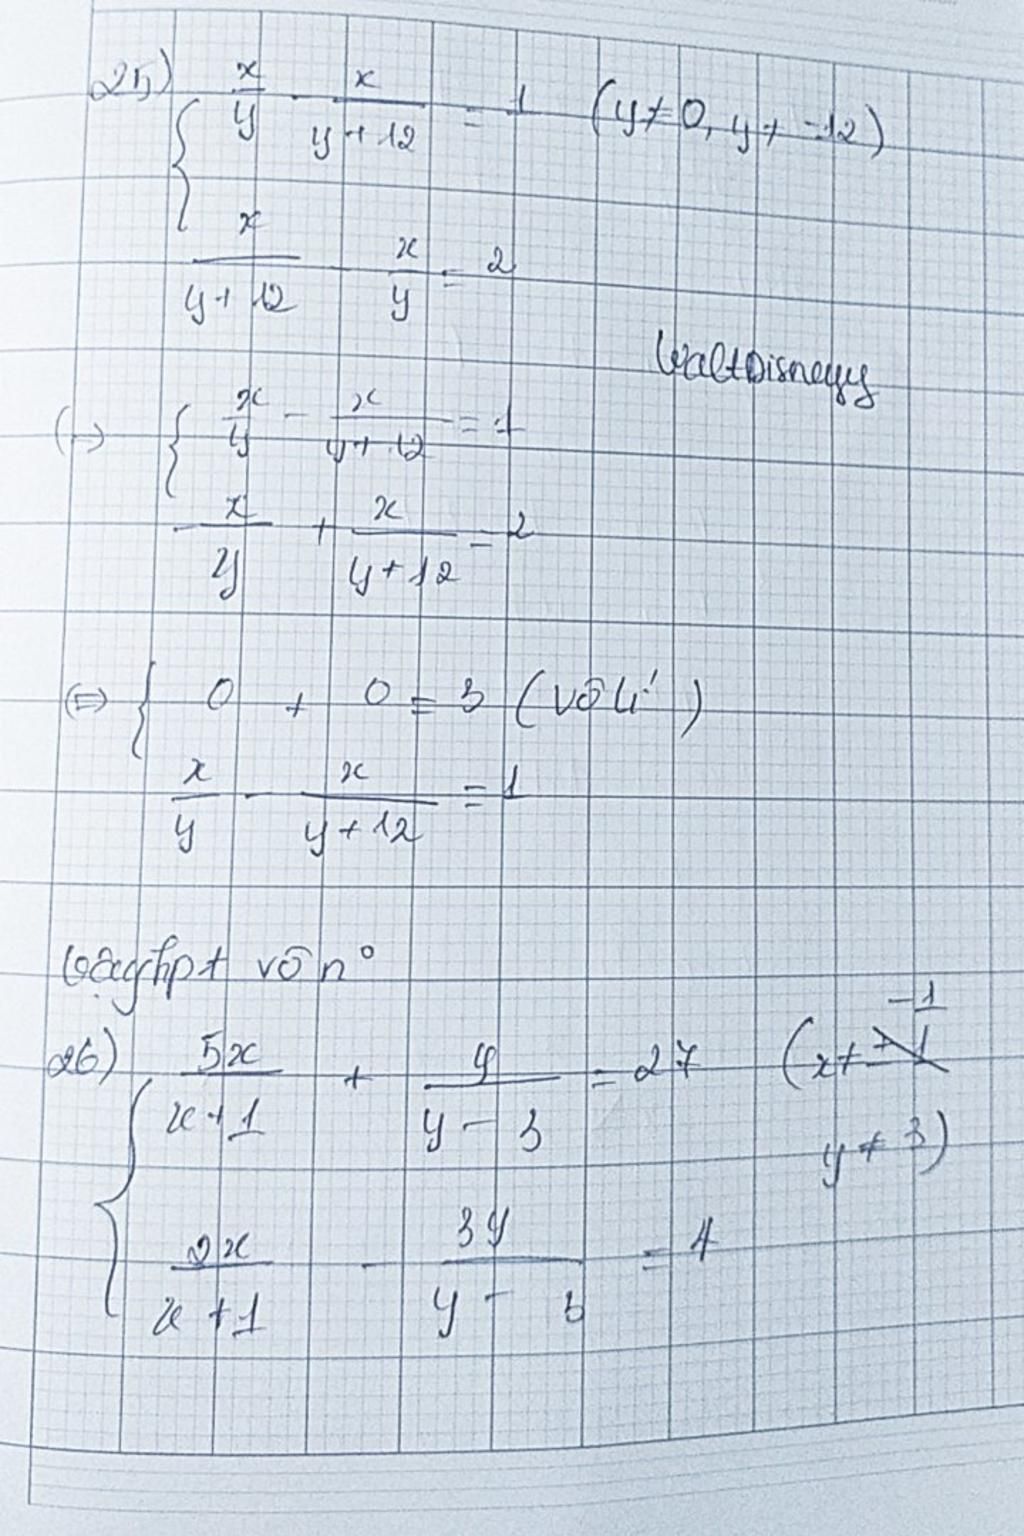 25) x/y - x/(y+12) = 1 (y ≠ 0, y ≠ -12)
x/(y+12) - x/y = 2
WaltDisneyy
(↔) x/y - x/(y+12) = 1
-x/y + x/(y+12) = 2
(=) 0 + 0 = 3 (vô lí)
x/y - x/(y+12) = 1
Vậy hpt vô n°
26) 5x/(x+1) + y/(y-3) = 27 (x ≠ -1
y ≠ 3)
2x/(x+1) - 3y/(y-3) = 4